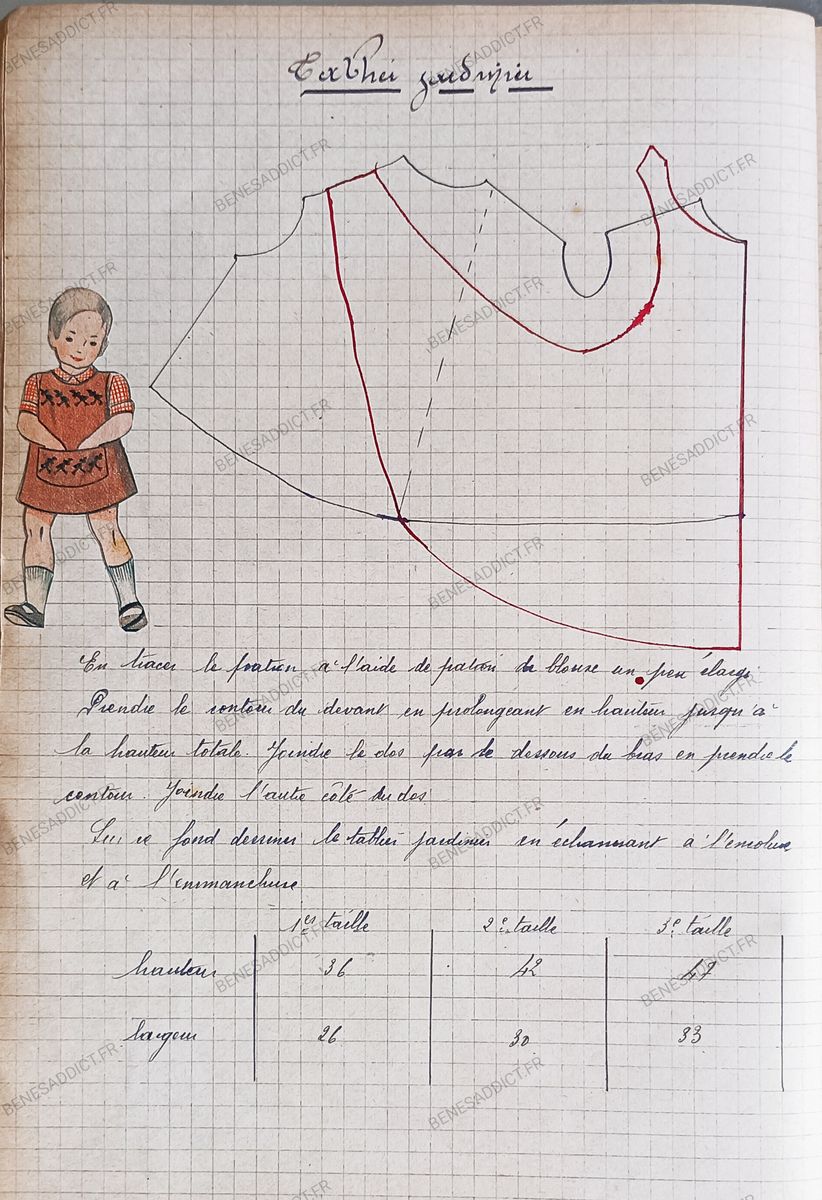 Tablier jardinier
En tracer le patron à l'aide de patron de blouse un peu élargi.
Prendre le contour du devant en prolongeant en hauteur jusqu'à
la hauteur totale. Joindre le dos par le dessous du bras en prendre le
contour. Joindre l'autre côté du dos
Sur ce fond dessiner le tablier jardinier en échancrant à l'encolure
et à l'emmanchure
1es taille 2e taille 3e taille
hauteur 36 42
largeur 26 30 33
BENESADDICT.FR